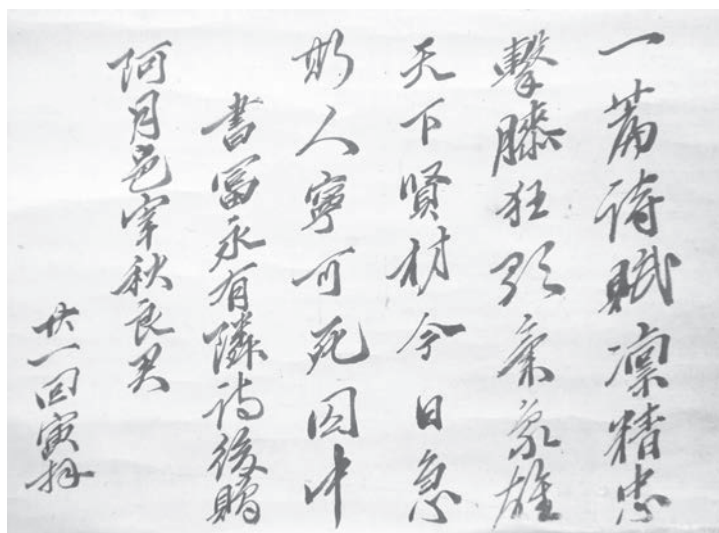 一篇詩賦凛精忠
撃膝狂歌氣象雄
天下賢材今日急
斯人寧可死囚中
書冨永有隣詩後贈
阿月邑宰秋良君
廿一回寅拝